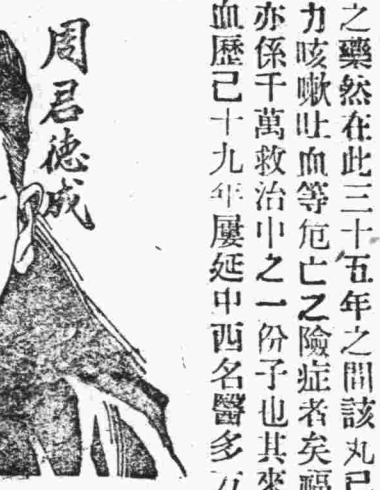 之藥然在此三十五年之間該丸已
力咳嗽吐血等危亡之險症者矣福
亦係千萬救治中之一份子也其來
血歷已十九年屢延中西名醫多方
周君德成